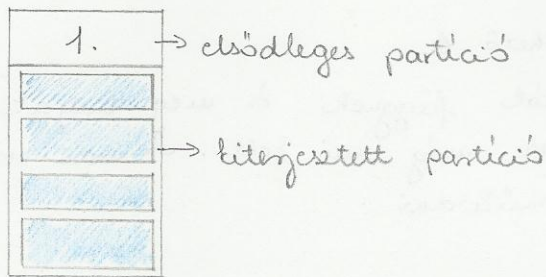 1.
elsődleges partíció
kiterjesztett partíció